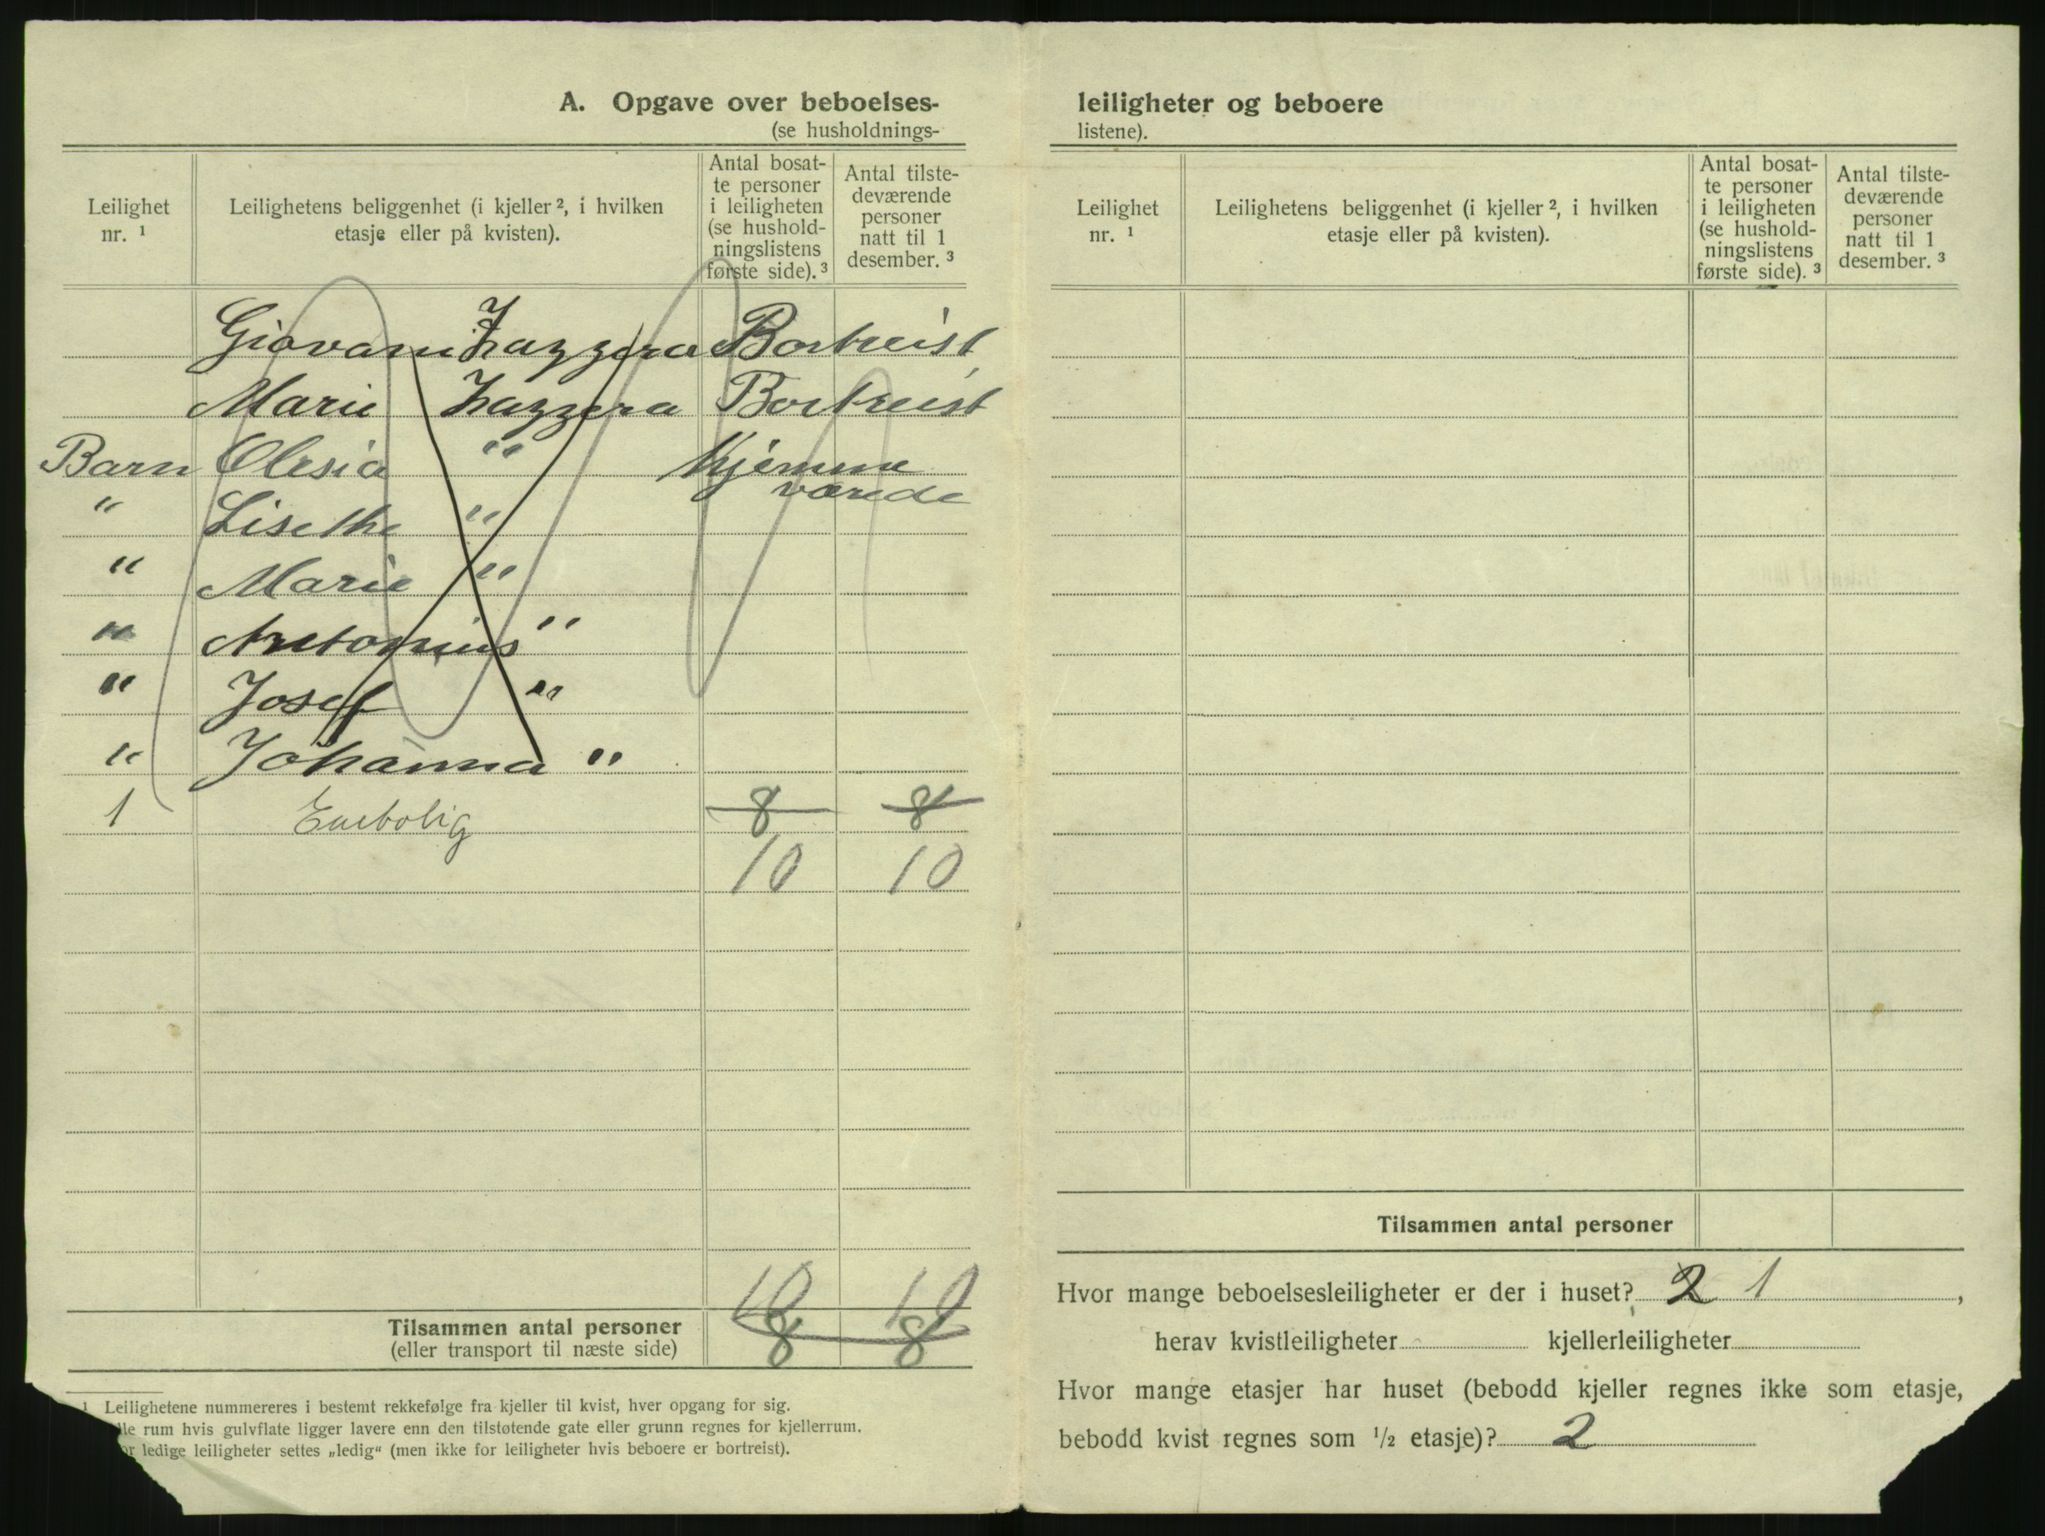 A. Opgave over beboelses-
(se husholdnings-
Leilighet nr. ¹
Leilighetens beliggenhet (i kjeller ², i hvilken etasje eller på kvisten).
Antal bosat-
te personer
i leiligheten
(se hushold-
ningslistens
første side). ³
Antal tilste-
deværende
personer
natt til 1
desember. ³
Giovani Zazzera Bortreist
Marie Zazzera Bortreist
Barn Olesia " Hjemme
værede
" Lisethe "
" Marie "
" Antonius "
" Josef "
" Johanna "
1 Enebolig 8 8
10 10
10 10
Tilsammen antal personer 8 8
(eller transport til næste side)
¹ Leilighetene nummereres i bestemt rekkefølge fra kjeller til kvist, hver opgang for sig.
lle rum hvis gulvflate ligger lavere enn den tilstøtende gate eller grunn regnes for kjellerrum.
or ledige leiligheter settes „ledig“ (men ikke for leiligheter hvis beboere er bortreist).
leiligheter og beboere
listene).
Leilighet nr. ¹
Leilighetens beliggenhet (i kjeller ², i hvilken etasje eller på kvisten).
Antal bosat-
te personer
i leiligheten
(se hushold-
ningslistens
første side). ³
Antal tilste-
deværende
personer
natt til 1
desember. ³
Tilsammen antal personer
Hvor mange beboelsesleiligheter er der i huset? 2 1 ,
herav kvistleiligheter kjellerleiligheter
Hvor mange etasjer har huset (bebodd kjeller regnes ikke som etasje,
bebodd kvist regnes som ½ etasje)? 2